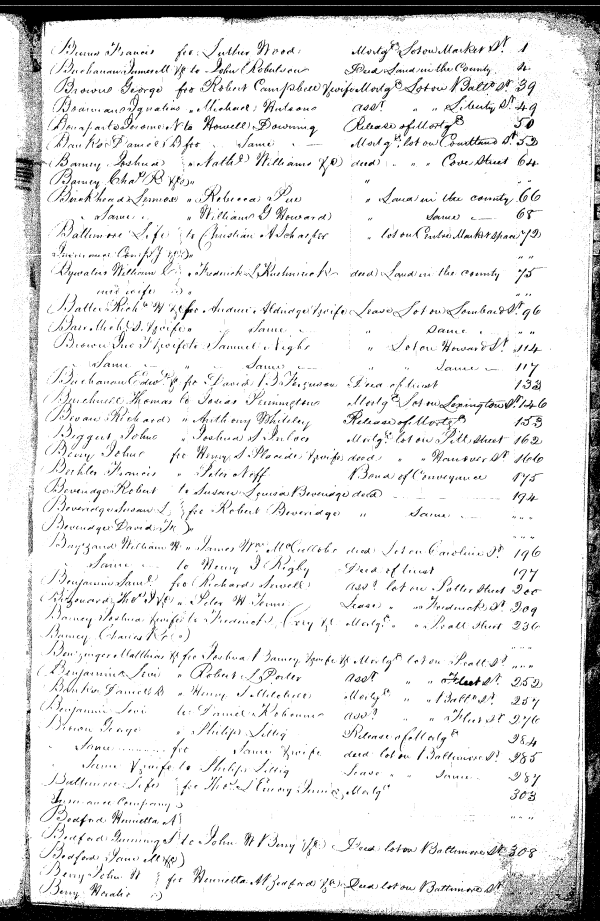 Burns Francis fro Luther Wood Mortg. Lot on Market St 1
Buchanan James M &c to John C Robertson Deed Land in the County 4
Browne George fro Robert Campbell & wife Mortg. Lot on Balto St 39
Boarman Ignatius " Michael Asst. " " Liberty St 49
Bonaparte Jerome N to Howell Downing Release of Mortg. 50
Banks Daniel B fro Same Mortg. lot on Courtland St 52
Barney Joshua " Nathl. Williams &c deed " " Cove Street 64
Barney Chas. R &c " "
Birckhead " Rebecca Pue " Land in the county 66
Same " William G Howard " same 68
Baltimore Life to Christian A Schaefer " lot on Centre Market space 72
Insurance Compy &c "
Bywater William & Frederick L deed Land in the county 75
and wife " "
Batter Richd. W &c fro Andrew Aldridge & wife Lease Lot on Lombard St 96
Barr Michl. S. & wife " same " same " "
Brown Jno T & wife to Samuel " Lot on Howard St 114
Same " Same " " Same 117
Buchanan Edwd. & fro David B Ferguson Deed of trust 133
Thomas to Josias Pennington Mortg. Lot on Lexington St 146
Bevan Richard " Anthony Whiteley Release of Mortg. 153
Beggert John " Joshua S Mortg. lot on Pitt Street 162
Berry John fro Henry S & wife deed " " Hanover St 166
Francis " Peter Neff Bond of Conveyance 175
Beveridge Robert to Susan Louisa Beveridge deed 194
Beveridge Susan L fro Robert Beveridge " Same " "
Beveridge David Jr "
William W " James Wm. deed Lot on Caroline St. 196
Same to Henry J Rigby Deed of trust 197
Benjamin Saml. fro Richard Sewell asst. lot on Potter Street 200
Thos. J &c " Peter W Lease " " Frederick St. 209
Barney Joshua & wife to Frederick &c Mortg. " " Scott Street 236
Barney Charles R &c
Benzinger Matthias &c fro Joshua Barney & wife &c Mortg. lot on Scott St. " "
Benjamin Levi " Robert L Porter asst. " " Fleet St. 252
Banks Daniel B " Henry Mitchell Mortg. " " Balto St. 257
Benjamin Levi to Daniel asst. " " Fleet St 276
Brown George " Philip Release of Mortg. 284
Same fro Same & wife deed lot on Baltimore St. 285
Same & wife to Philip Lease " " same 287
Baltimore Life fro Thos. Mortg. 303
Insurance Company
Bedford Henrietta A " "
Bedford Gunning S to John W Berry &c Deed lot on Baltimore St. 308
Bedford Jane M &c
Berry John W fro Henrietta A Bedford &c Deed lot on Baltimore St.
Berry Horatio